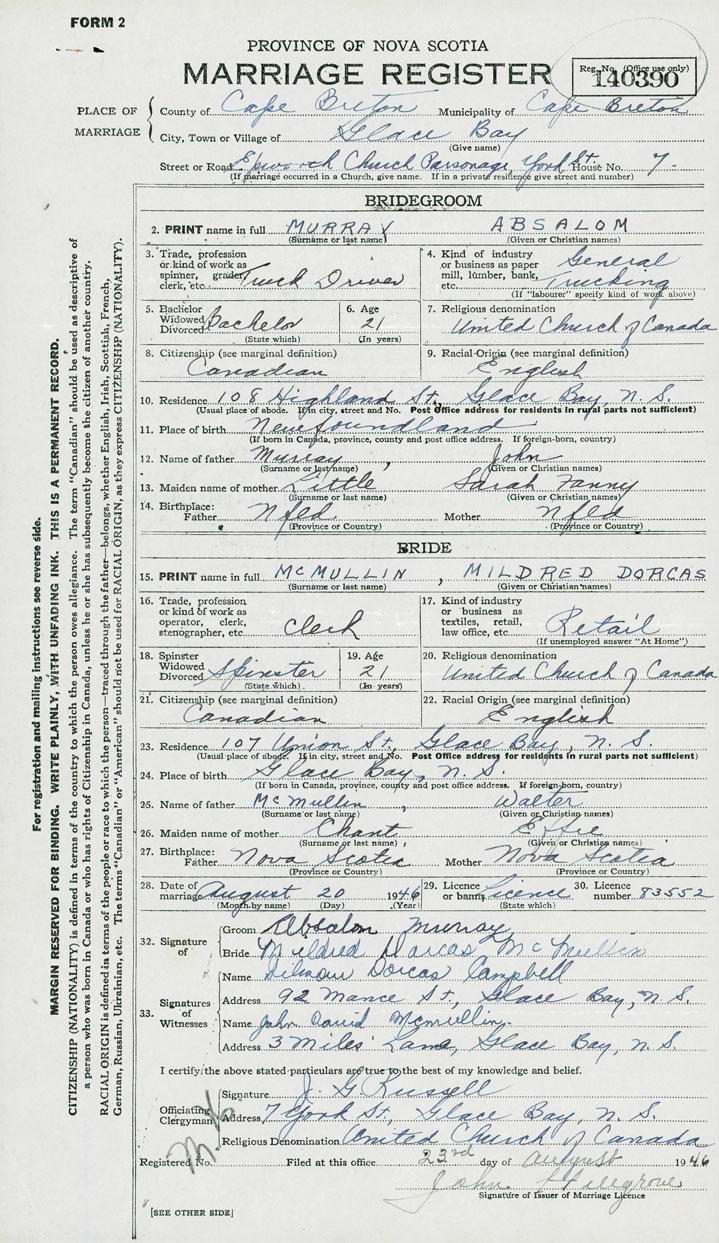 FORM 2
PROVINCE OF NOVA SCOTIA
MARRIAGE REGISTER
Reg. No. (Office use only)
140390
PLACE OF MARRIAGE
County of Cape Breton Municipality of Cape Breton
City, Town or Village of Glace Bay
(Give name)
Street or Road Epworth Church Parsonage, York St. House No. 7
(If marriage occurred in a Church, give name. If in a private residence give street and number)
BRIDEGROOM
2. PRINT name in full MURRAY ABSALOM
(Surname or last name) (Given or Christian names)
3. Trade, profession or kind of work as spinner, grader, clerk, etc. Truck Driver
4. Kind of industry or business as paper mill, lumber, bank, etc. General Trucking
(If "labourer" specify kind of work above)
5. Bachelor Widowed Divorced Bachelor
(State which)
6. Age 21
(In years)
7. Religious denomination
United Church of Canada
8. Citizenship (see marginal definition)
Canadian
9. Racial Origin (see marginal definition)
English
10. Residence 108 Highland St., Glace Bay, N. S.
(Usual place of abode. If in city, street and No. Post Office address for residents in rural parts not sufficient)
11. Place of birth Newfoundland
(If born in Canada, province, county and post office address. If foreign-born, country)
12. Name of father Murray, John
(Surname or last name) (Given or Christian names)
13. Maiden name of mother Little Sarah Fanny
(Surname or last name) (Given or Christian names)
14. Birthplace: Father Nfld Mother Nfld
(Province or Country) (Province or Country)
BRIDE
15. PRINT name in full MCMULLIN, MILDRED DORCAS
(Surname or last name) (Given or Christian names)
16. Trade, profession or kind of work as operator, clerk, stenographer, etc. Clerk
17. Kind of industry or business as textiles, retail, law office, etc. Retail
(If unemployed answer "At Home")
18. Spinster Widowed Divorced Spinster
(State which)
19. Age 21
(In years)
20. Religious denomination
United Church of Canada
21. Citizenship (see marginal definition)
Canadian
22. Racial Origin (see marginal definition)
English
23. Residence 107 Union St., Glace Bay, N. S.
(Usual place of abode. If in city, street and No. Post Office address for residents in rural parts not sufficient)
24. Place of birth Glace Bay, N. S.
(If born in Canada, province, county and post office address. If foreign-born, country)
25. Name of father McMullin, Walter
(Surname or last name) (Given or Christian names)
26. Maiden name of mother Chant Effie
(Surname or last name) (Given or Christian names)
27. Birthplace: Father Nova Scotia Mother Nova Scotia
(Province or Country) (Province or Country)
28. Date of marriage August 20 1946
(Month by name) (Day) (Year)
29. Licence or banns Licence
(State which)
30. Licence number 83552
32. Signature of
Groom Absalom Murray
Bride Mildred Dorcas McMullin
33. Signatures of Witnesses
Name Dorcas Campbell
Address 92 Mance St., Glace Bay, N. S.
Name John David Mcmullin
Address 3 Miles' Lane, Glace Bay, N. S.
I certify the above stated particulars are true to the best of my knowledge and belief.
Officiating Clergyman
Signature J. G. Russell
Address 7 York St., Glace Bay, N. S.
Religious Denomination United Church of Canada
Registered No. Filed at this office 23rd day of August 1946
John
Signature of Issuer of Marriage Licence
[SEE OTHER SIDE]
For registration and mailing instructions see reverse side.
MARGIN RESERVED FOR BINDING. WRITE PLAINLY, WITH UNFADING INK. THIS IS A PERMANENT RECORD.
CITIZENSHIP (NATIONALITY) is defined in terms of the country to which the person owes allegiance. The term "Canadian" should be used as descriptive of
a person who was born in Canada or who has rights of Citizenship in Canada, unless he or she has subsequently become the citizen of another country.
RACIAL ORIGIN is defined in terms of the people or race to which the person—traced through the father—belongs, whether English, Irish, Scottish, French,
German, Russian, Ukrainian, etc. The terms "Canadian" or "American" should not be used for RACIAL ORIGIN, as they express CITIZENSHIP (NATIONALITY).